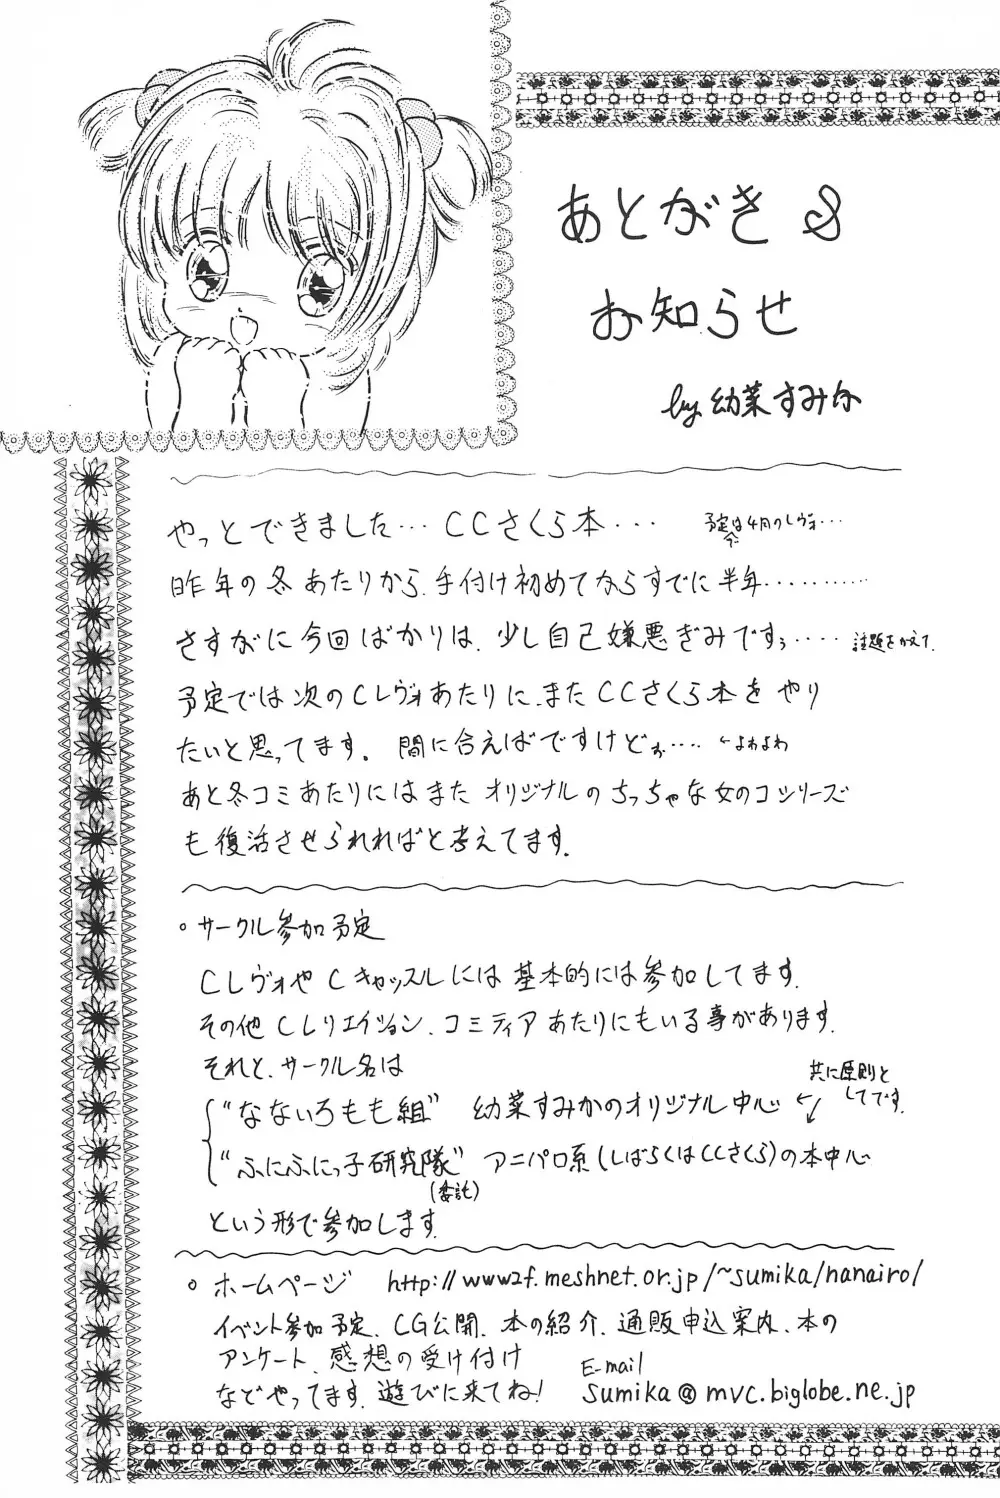 あとがき &
お知らせ
by 幼菜すみか
やっとできました… CCさくら本… 予定は4月のレヴォ…
昨年の冬あたりから、手付け初めてならすでに半年…………
さすがに今回ばかりは、少し自己嫌悪ぎみですぅ…… 話題をかえて、
予定では次のCレヴォあたりに、またCCさくら本をやり
たいと思ってます。間に合えばですけどぉ…… ←よわよわ
あと冬コミあたりにはまたオリジナルのちっちゃな女のコシリーズ
も復活させられればと考えてます。
○ サークル参加予定
CレヴォやCキャッスルには基本的には参加してます。
その他Cレリエイション、コミティアあたりにもいる事があります。
それと、サークル名は
共に原則と
してです。
“なないろもも組” 幼菜すみかのオリジナル中心 ←↙
“ふにふにっ子研究隊” アニパロ系(しばらくはCCさくら)の本中心
(委託)
という形で参加します。
○ ホームページ http://www2f.meshnet.or.jp/~sumika/nanairo/
イベント参加予定、CG公開、本の紹介、通販申込案内、本の
アンケート、感想の受け付け
などやってます。遊びに来てね!
E-mail
sumika@mvc.biglobe.ne.jp